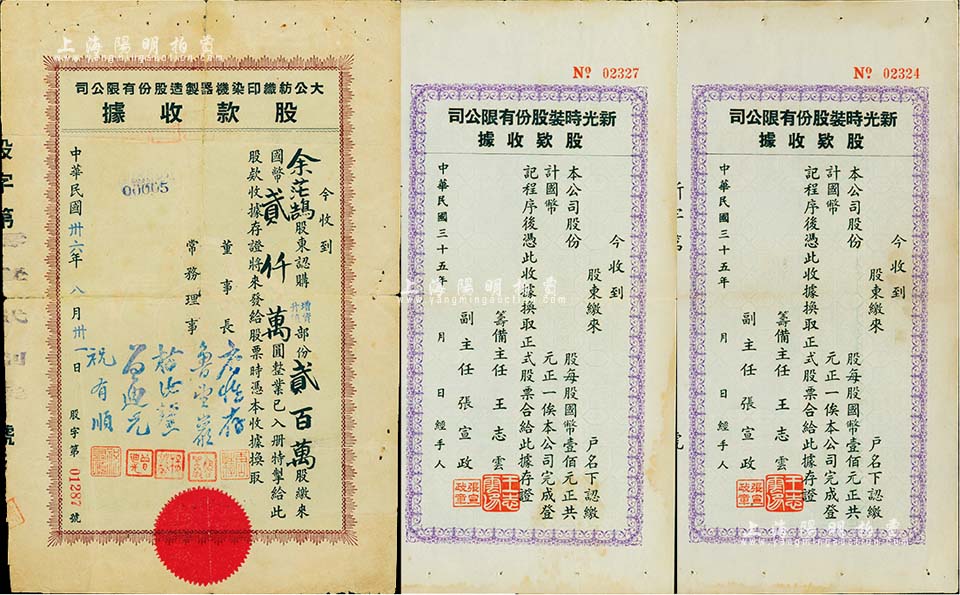 上海陽明拍賣
大公紡織印染機器製造股份有限公司
股款收據
今收到
余茫鵠股東認購增資部份貳百萬股繳來
國幣貳仟萬圓整業已入册特掣給此
股款收據存證將來發給股票時憑本收據換取
董事長
常務理事
祝有順
中華民國卅六年八月卅一日
股字第01287號
00605
股字第
號
上海陽明拍賣
www.yangmingauction.com
No 02327
新光時裝股份有限公司
股款收據
今收到
股東繳來
戶名下認繳
本公司股份
股每股國幣壹佰元正共
計國幣
元正一俟本公司完成登
記程序後憑此收據換取正式股票合給此據存證
籌備主任王志雲
副主任張宣政
中華民國三十五年
月
日
經手人
No 02324
新光時裝股份有限公司
股款收據
今收到
股東繳來
戶名下認繳
本公司股份
股每股國幣壹佰元正共
計國幣
元正一俟本公司完成登
記程序後憑此收據換取正式股票合給此據存證
籌備主任王志雲
副主任張宣政
中華民國三十五年
月
日
經手人